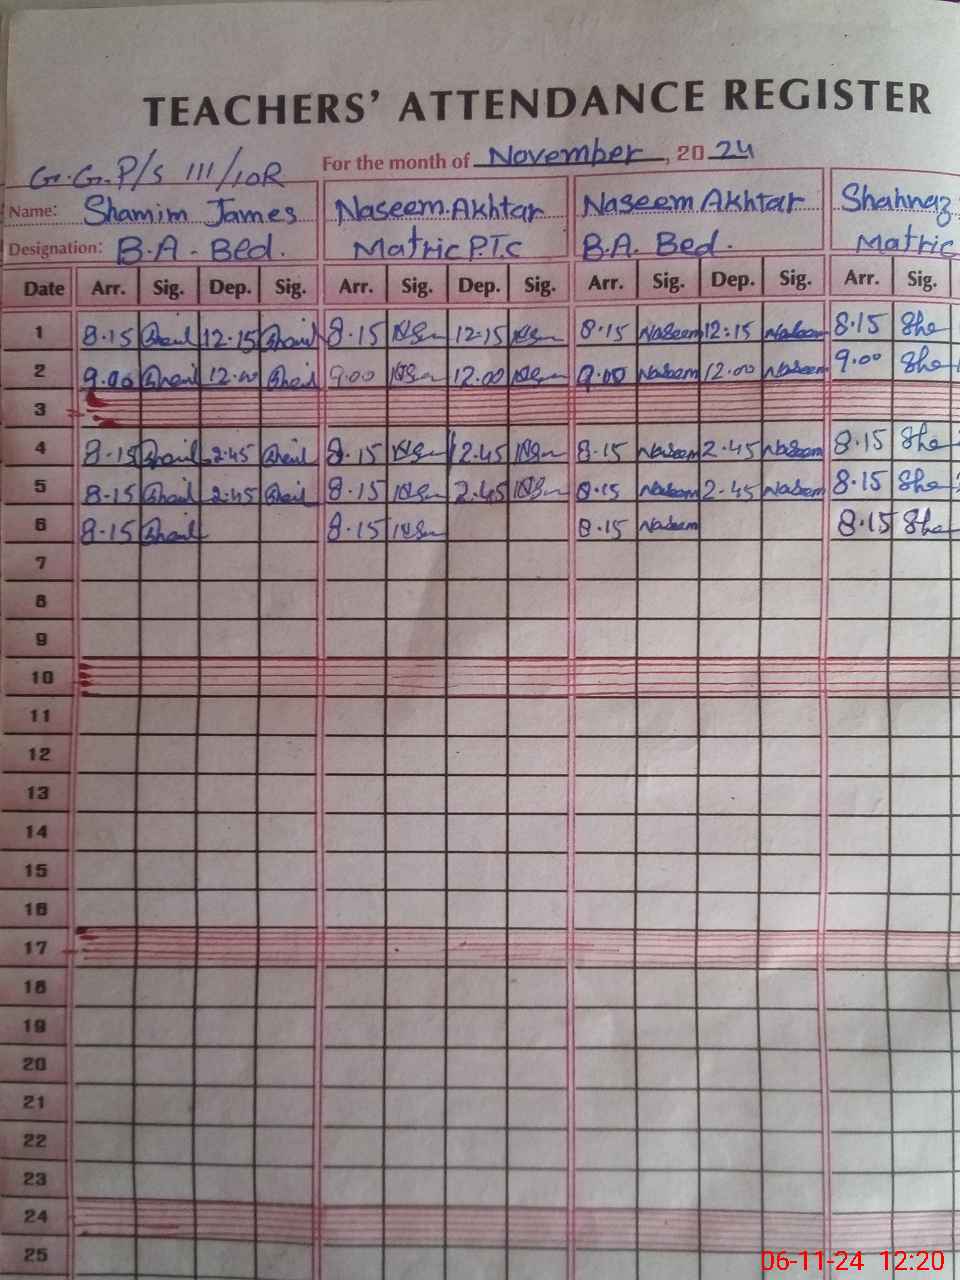 TEACHERS' ATTENDANCE REGISTER
G.G.P/S 111/10R For the month of November, 2024
Name: Shamim James Naseem Akhtar Naseem Akhtar Shahnaz
Designation: B.A - Bed. Matric P.T.C B.A. Bed. Matric
Date Arr. Sig. Dep. Sig. Arr. Sig. Dep. Sig. Arr. Sig. Dep. Sig. Arr. Sig.
1 8.15 12.15 8.15 12.15 8.15 Naseem 12.15 Naseem 8.15 She
2 9.00 12.00 9.00 12.00 9.00 Naseem 12.00 Naseem 9.00 She
3
4 8.15 2.45 8.15 2.45 8.15 Naseem 2.45 Naseem 8.15 She
5 8.15 2.45 8.15 2.45 8.15 Naseem 2.45 Naseem 8.15 She
6 8.15 8.15 8.15 Naseem 8.15 She
7
8
9
10
11
12
13
14
15
16
17
18
19
20
21
22
23
24
25
06-11-24 12:20